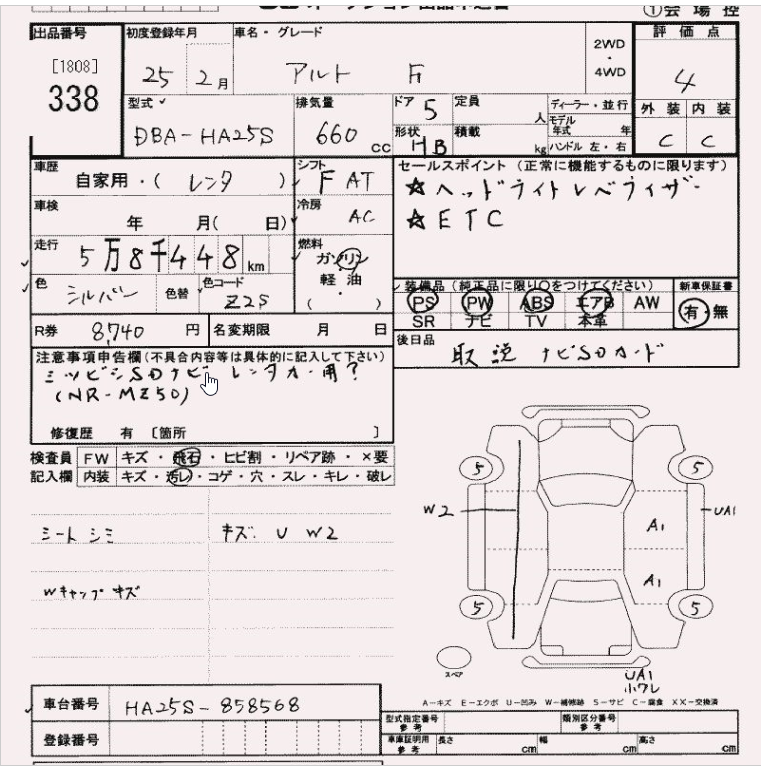 ①会場控
出品番号
[1808]
338
初度登録年月
25 2月
車名・グレード
アルト F
2WD
・
4WD
評価点
4
外装 内装
C C
型式
DBA-HA25S
排気量
660 cc
ドア 5
形状 HB
定員 人
積載 kg
ディーラー・並行
モデル年式 年
ハンドル 左・右
車歴
自家用・(レンタ)
シフト
F AT
車検
年 月( 日)
冷房
AC
走行
5万8千448 km
燃料
ガソリン
軽油
・
( )
色
シルバー
色替
色コード
Z2S
R券 8,740 円
名変期限 月 日
セールスポイント(正常に機能するものに限ります)
☆ヘッドライトレベライザー
☆ETC
装備品(純正品に限り○をつけてください)
PS PW ABS エアB AW
SR ナビ TV 本革
新車保証書
有・無
後日品
取説 ナビSDカード
注意事項申告欄(不具合内容等は具体的に記入して下さい)
ミツビシSDナビ レンタカー用?
(NR-MZ50)
修復歴 有 〔箇所 〕
検査員 FW キズ・飛石・ヒビ割・リペア跡・×要
記入欄 内装 キズ・汚レ・コゲ・穴・スレ・キレ・破レ
シート シミ
キズ. U W2
Wキャップ キズ
5 5
W2
UA1
A1
A1
5 5
スペア
UA1
小ワレ
A-キズ E-エクボ U-凹み W-補修跡 S-サビ C-腐食 XX-交換済
車台番号 HA25S-858568
登録番号
型式指定番号 参考
類別区分番号 参考
車庫証明用 参考
長さ cm
幅 cm
高さ cm